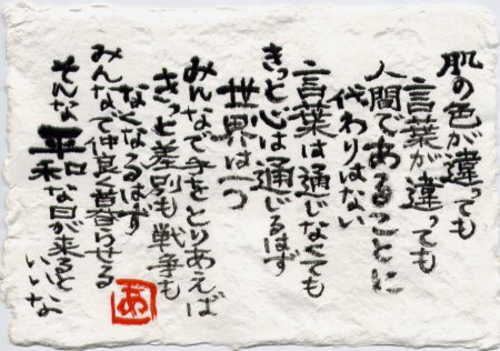 肌の色が違っても
言葉が違っても
人間であることに
代わりはない
言葉は通じなくても
きっと心は通じるはず
世界は一つ
みんなで手をとりあえば
きっと差別も戦争も
なくなるはず
みんなで仲良く暮らせる
そんな平和な日が来ると
いいな
あ